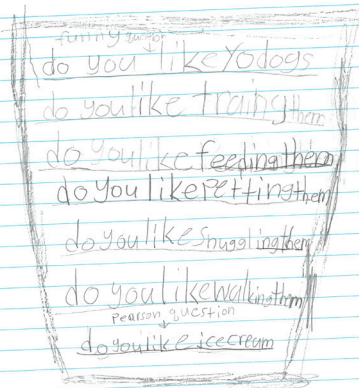 funny
do you like Yo dogs
do you like traing them
do you like feeding them
do you like petting them
do you like snuggling them
do you like walking them
Pearson question
do you like icecream